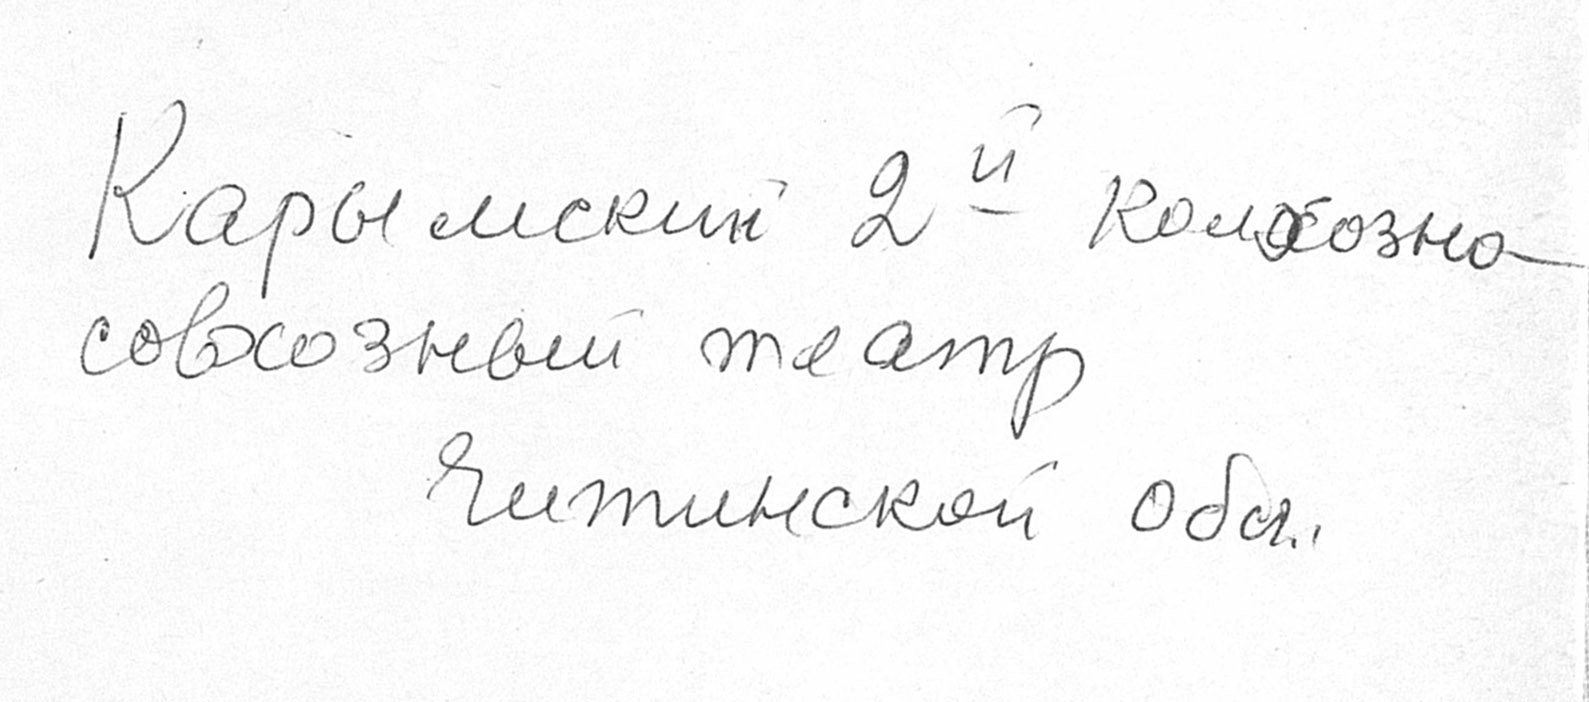 Карымский 2й колхозно-
совхозный театр
Читинской обл.